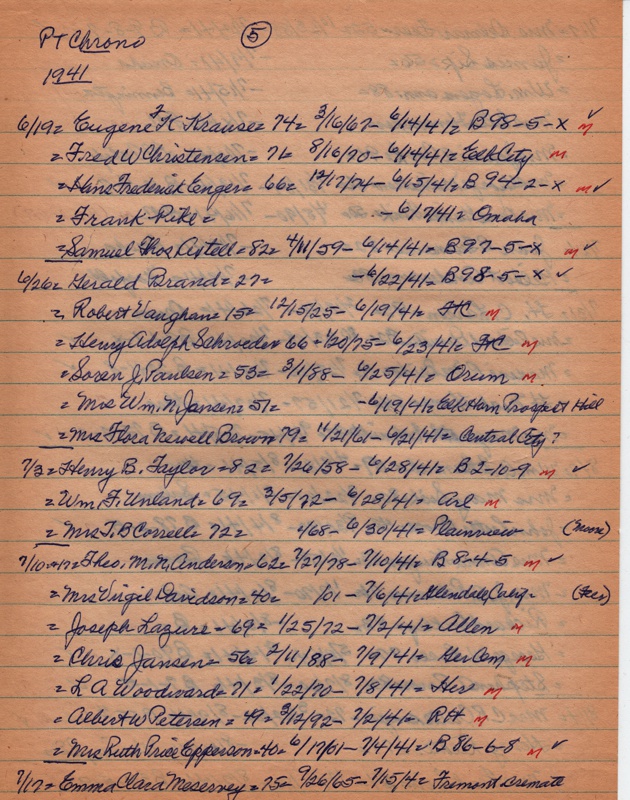 PT Chrono ⑤
1941
6/19= Eugene K Krause= 74= 3/16/67- 6/14/41= B 98-5-X m ✓
= Fred W Christensen= 71= 8/16/70- 6/14/41= Elk City m
= Hans Frederick Enger= 66= 12/17/74- 6/15/41= B 94-2-X m ✓
= Frank Pike= - 6/7/41= Omaha
= Samuel Thos Astell= 82= 4/11/59- 6/14/41= B 97-5-X m ✓
6/26= Gerald Brand= 27= -6/22/41= B 98-5-X ✓
= Robert Vaughan= 15= 12/15/25- 6/19/41= m
= Henry Adolph Schroeder 66= 1/20/75- 6/23/41= m
= Soren J. Paulsen= 53= 3/1/88- 6/25/41= Orum m
= Mrs Wm. N. Jansen= 51= -6/19/41= Elk Horn Prospect Hill
= Mrs Flora Newell Brown 79= 11/21/61- 6/21/41= Central City?
7/3= Henry B. Taylor= 82= 7/26/58- 6/28/41= B 2-10-9 m ✓
= Wm. F. Unland= 69= 3/5/72- 6/28/41= Arl m
= Mrs T. B Correll= 72= /68- 6/30/41= Plainview
7/10+17= Theo. M. N. Anderson= 62= 7/27/78- 7/10/41= B 8-4-5 m ✓
= Mrs Virgil Davidson= 40= /01- 7/6/41= Glendale,
= Joseph Lazure= 69= 1/25/72- 7/2/41= Allen m
= Chris Jansen= 56= 2/11/88- 7/9/41= Ger Cem m
= L A Woodward= 71= 1/22/70- 7/8/41= Her m
= Albert W Petersen= 49= 3/12/92- 7/2/41= RH m
= Mrs Ruth Price Epperson= 40= 6/17/01- 7/4/41= B 86-6-8 m ✓
7/17= Emma Clara Meservey= 75= 9/26/65- 7/15/4= Fremont cremate